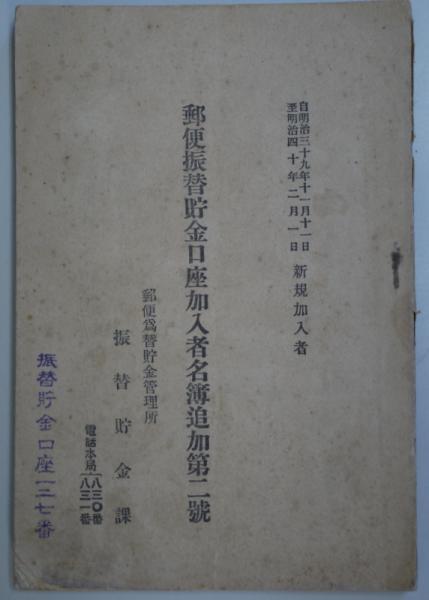 自明治三十九年十一月十一日
至明治四十年二月一日
新規加入者
郵便振替貯金口座加入者名簿追加第二號
郵便爲替貯金管理所
振替貯金課
電話本局
一八三〇番
一八三一番
振替貯金口座一二七番